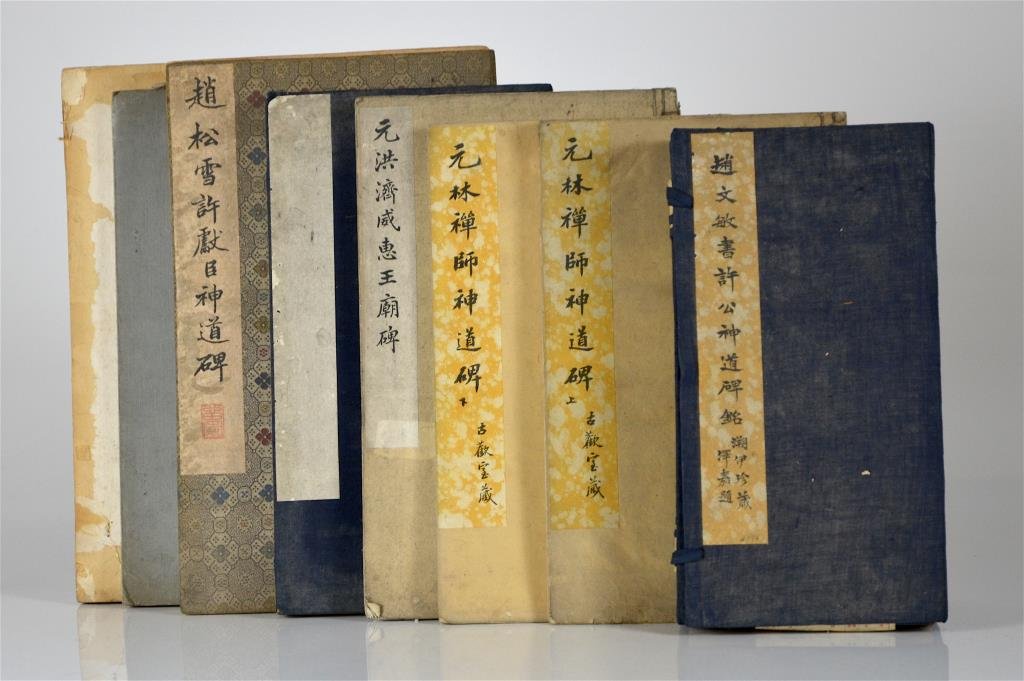 趙松雪許獻臣神道碑
元洪濟威惠王廟碑
元林禪師神道碑 下
古歡室藏
元林禪師神道碑 上
古歡室藏
趙文敏書許公神道碑銘
珍藏
題